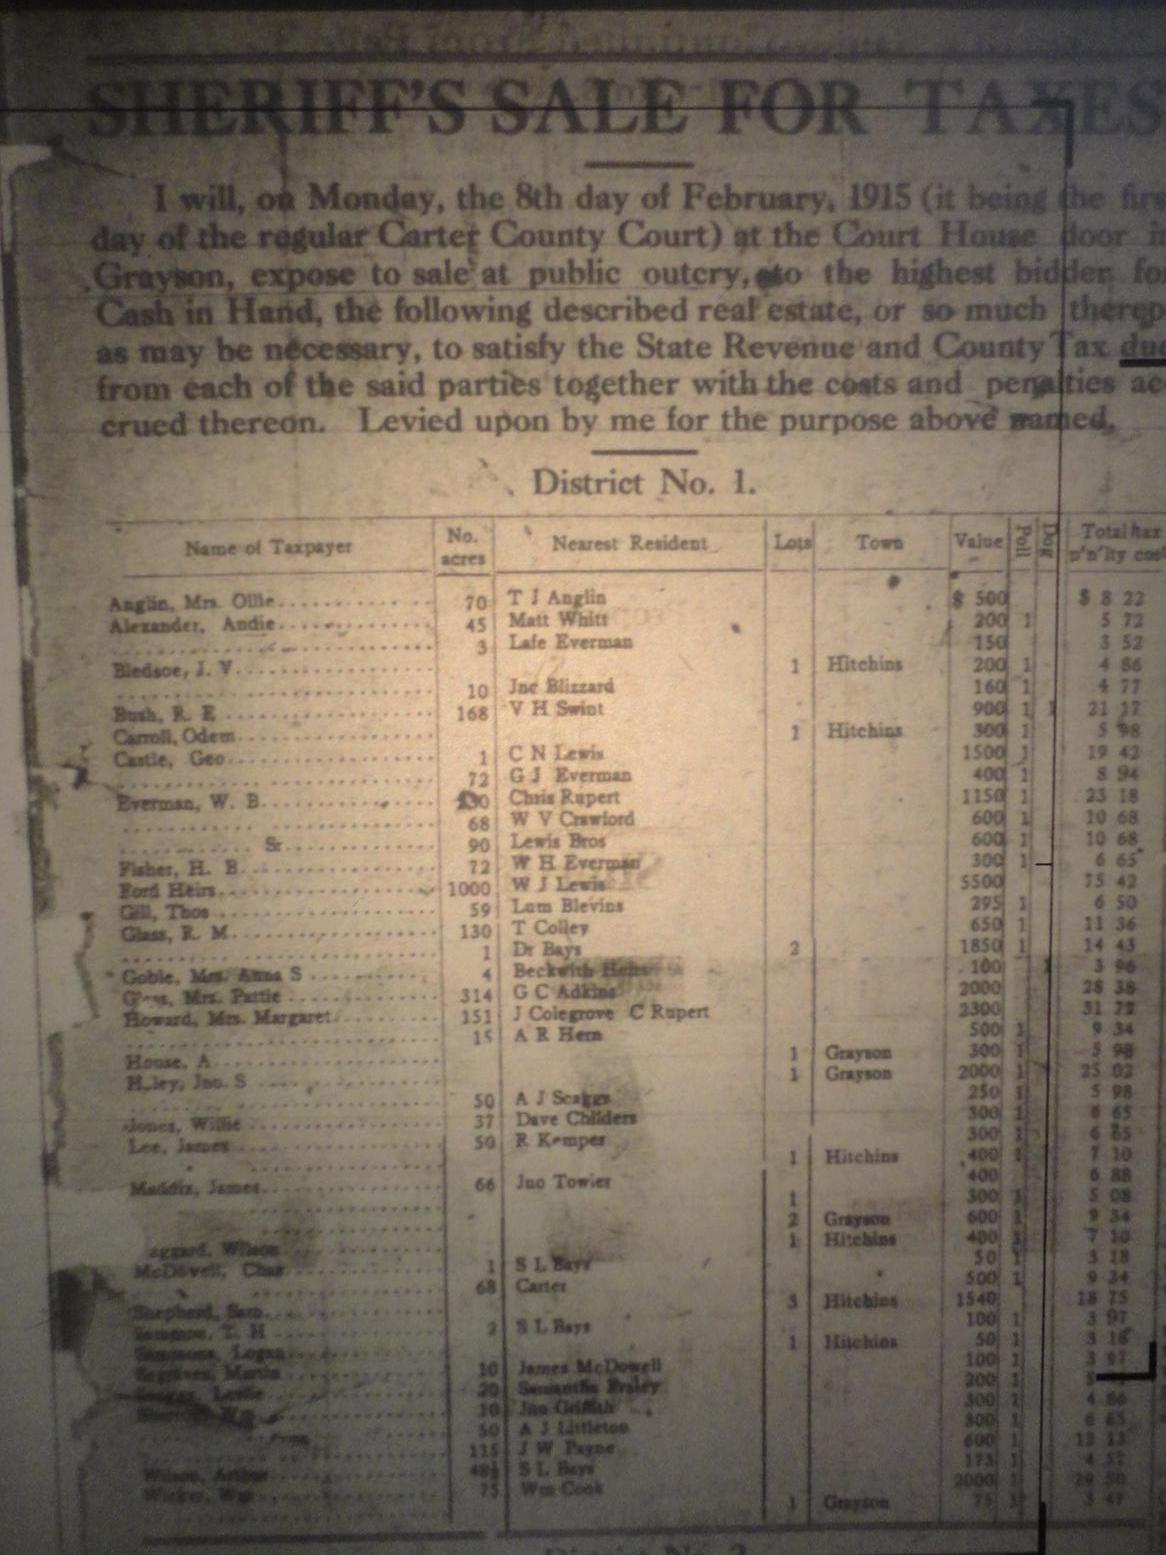 SHERIFF'S SALE FOR TAXES
I will, on Monday, the 8th day of February, 1915 (it being the firs
day of the regular Carter County Court) at the Court House door in
Grayson, expose to sale at public outcry, to the highest bidder for
Cash in Hand, the following described real estate, or so much thereo
as may be necessary, to satisfy the State Revenue and County Tax due
from each of the said parties together with the costs and penalties ac
crued thereon. Levied upon by me for the purpose above named.
District No. 1.
Name of Taxpayer No. acres Nearest Resident Lots Town Value Poll Dog Total tax p'n'lty cost
Anglin, Mrs. Ollie 70 T J Anglin $ 500 $ 8 22
Alexander, Andie 45 Matt Whitt 200 1 5 72
3 Lafe Everman 150 3 52
Bledsoe, J. V 1 Hitchins 200 1 4 86
10 Jno Blizzard 160 1 4 77
Bush, R. E 168 V H Swint 900 1 1 21 17
Carroll, Odem 1 Hitchins 300 1 5 98
Castle, Geo 1 C N Lewis 1500 1 19 42
72 G J Everman 400 1 8 94
Everman, W. B Chris Rupert 1150 1 23 18
68 W V Crawford 600 1 10 68
Sr 90 Lewis Bros 600 1 10 68
Fisher, H. B 72 W H Everman 300 1 6 65
Ford Heirs 1000 W J Lewis 5500 75 42
Gill, Thos 59 Lum Blevins 295 1 6 50
Glass, R. M 130 T Colley 650 1 11 36
1 Dr Bays 2 1850 1 14 43
Goble, Mrs. Anna S 4 Beckwith Heirs 100 1 3 96
Mrs. Pattie 314 G C Adkins 2000 28 38
Howard, Mrs. Margaret 151 J Colegrove C Rupert 2300 31 72
15 A R Horn 500 1 9 34
House, A 1 Grayson 300 1 5 98
Jno. S 1 Grayson 2000 1 25 02
50 A J Scaggs 250 1 5 98
Jones, Willie 37 Dave Childers 300 1 6 65
Lee, James 50 R Kemper 300 1 6 65
1 Hitchins 400 1 7 10
Maddix, James 66 Jno Towler 400 6 88
1 300 1 5 08
2 Grayson 600 1 9 34
aggard, Wilson 1 Hitchins 400 1 7 10
McDowell, Chas 1 S L Bays 50 1 3 18
68 Carter 500 1 9 34
Shepherd, Sam 3 Hitchins 1540 18 75
T. H 2 S L Bays 100 1 3 97
Simmons, Logan 1 Hitchins 50 1 3 18
Martin 10 James McDowell 100 1 3 97
Leslie 20 Samantha 200 1
10 Jno Griffith 300 1 4 86
50 A J Littleton 300 1 6 65
115 J W Payne 600 1 13 13
Wilson, Arthur 48½ S L Bays 173 1 4 57
75 Wm Cook 2000 1
1 Grayson 75 1 3 47